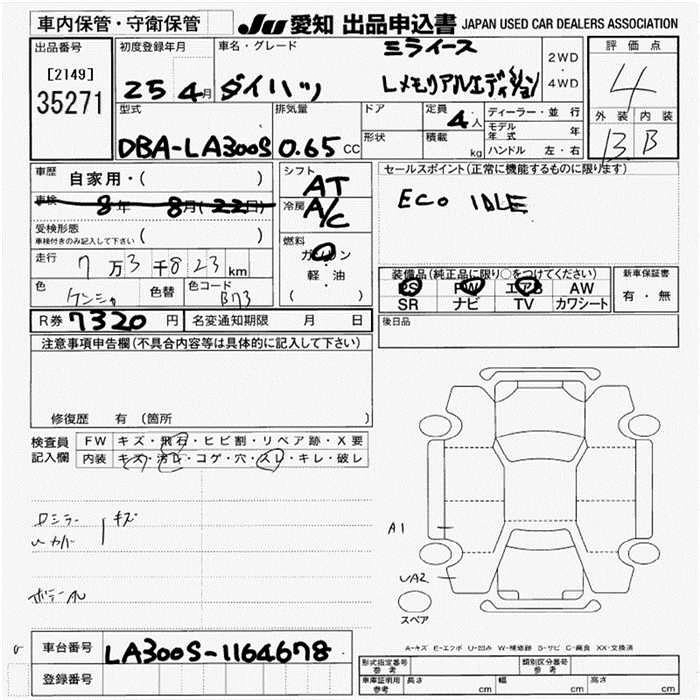 車内保管・守衛保管 JU 愛知 出品申込書 JAPAN USED CAR DEALERS ASSOCIATION
出品番号
[2149]
35271
初度登録年月
25 4月
車名・グレード
ダイハツ
ミライース
Lメモリアルエディション
2WD
・
4WD
評価点
4
外装 内装
B B
型式
DBA-LA300S
排気量
0.65 CC
ドア
形状
定員 4人
積載 kg
ディーラー・並行
モデル年式 年
ハンドル 左・右
車歴 自家用・( )
車検 8年 8月(22日)
受検形態
車検付きのみ記入して下さい ( )
走行 7万3千823km
色 色替 色コード
B73
シフト
AT
冷房
A/C
燃料
ガソリン
・
軽・油
( )
セールスポイント(正常に機能するものに限ります)
ECO IDLE
装備品(純正品に限り○をつけてください)
PS PW エアB AW
SR ナビ TV カワシート
新車保証書
有・無
R券 7320円 名変通知期限 月 日
後日品
注意事項申告欄(不具合内容等は具体的に記入して下さい)
修復歴 有 (箇所 )
検査員
記入欄
FW キズ・飛石・ヒビ割・リペア跡・X要
内装 キズ・汚レ・コゲ・穴・スレ・キレ・破レ
キズ
カバー
A1
UA2
スペア
A-キズ E-エクボ U-凹み W-補修跡 S-サビ C-腐食 XX-交換済
車台番号 LA300S-1164678
登録番号
形式指定番号
参考
類別区分番号
参考
車庫証明用
参考
長さ cm 幅 cm 高さ cm